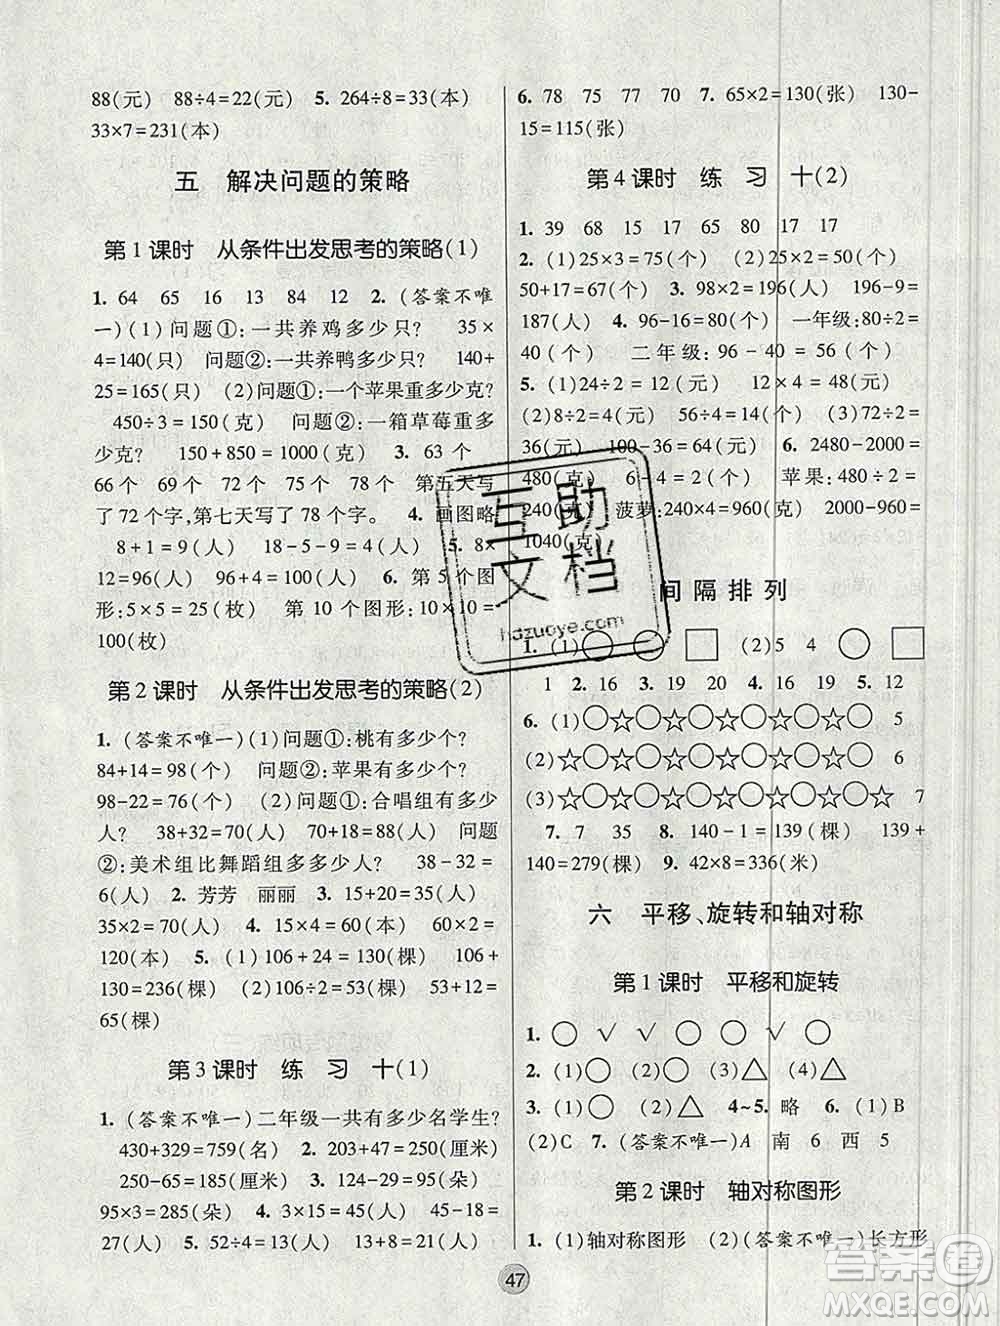 88(元) 88÷4=22(元) 5. 264÷8=33(本)
33×7=231(本)
五 解决问题的策略
第1课时 从条件出发思考的策略(1)
1. 64 65 16 13 84 12 2. (答案不唯
一)(1)问题①:一共养鸡多少只? 35×
4=140(只) 问题②:一共养鸭多少只? 140+
25=165(只) (2)问题①:一个苹果重多少克?
450÷3=150(克) 问题②:一箱草莓重多
少克? 150+750=900(克) 3. 63 个
66个 69个 72个 75个 78个 第五天写
了72个字,第七天写了78个字。 4. 画图略
8+1=9(人) 18-9=9(人) 5. 8×
12=96(人) 96+4=100(人) 6. 第5个图
形:5×5=25(枚) 第10个图形:10×10=
100(枚)
第2课时 从条件出发思考的策略(2)
1. (答案不唯一)(1)问题①:桃有多少个?
84+14=98(个) 问题②:苹果有多少个?
98-22=76(个) (2)问题①:合唱组有多少
人? 38+32=70(人) 70+18=88(人) 问题
②:美术组比舞蹈组多多少人? 38-32=
6(人) 2. 芳芳 丽丽 3. 15+20=35(人)
35×2=70(人) 4. 15×4=60(本) 60×2=
120(本) 5. (1)106+24=130(棵) 106+
130=236(棵) (2)106÷2=53(棵) 53+12=
65(棵)
第3课时 练 习 十(1)
1. (答案不唯一)二年级一共有多少名学生?
430+329=759(名) 2. 203+47=250(厘米)
250-65=185(厘米) 3. 124-29=95(朵)
95×3=285(朵) 4. 3×15=45(人) 45-18=
27(人) 5. 52÷4=13(人) 13+8=21(人)
6. 78 75 77 70 7. 65×2=130(张) 130-
15=115(张)
第4课时 练 习 十(2)
1. 39 68 15 17 65 80 17 17
2. (1)25×3=75(个) (2)25×2=50(个)
50+17=67(个) 3. 98×2=196(人) 196-9=
187(人) 4. 96-16=80(个) 一年级:80÷2=
40(个) 二年级:96-40=56(个)
5. (1)24÷2=12(元) 12×4=48(元)
(2)8÷2=4(元) 56÷4=14(个) (3)72÷2=
36(元) 100-36=64(元) 6. 2480-2000=
480(克) 6-4=2(个) 苹果:480÷2=
240(克) 菠萝:240×4=960(克) 2000-960=
1040(克)
间隔排列
1. (1)○ ○ □ (2)5 4 ○ □
1 2. 16 3. 19 20 4. 16 5. 12
6. (1)○☆○☆○☆○☆○☆○ 5
(2)☆○☆○☆○☆○☆○☆ 6
(3)☆○☆○☆○☆○☆○☆○☆ 7
7. 7 35 8. 140-1=139(棵) 139+
140=279(棵) 9. 42×8=336(米)
六 平移、旋转和轴对称
第1课时 平移和旋转
1. ○ √ √ ○ √ ○
2. (1)○ (2)○ (3)△ (4)△
3. (1)○ (2)△ 4~5. 略 6. (1)B
(2)C 7. (答案不唯一)A 南 6 西 5
第2课时 轴对称图形
1. (1)轴对称图形 (2)(答案不唯一)长方形
47
互助文档
hdzuoye.com
答案圈
MXQE.COM